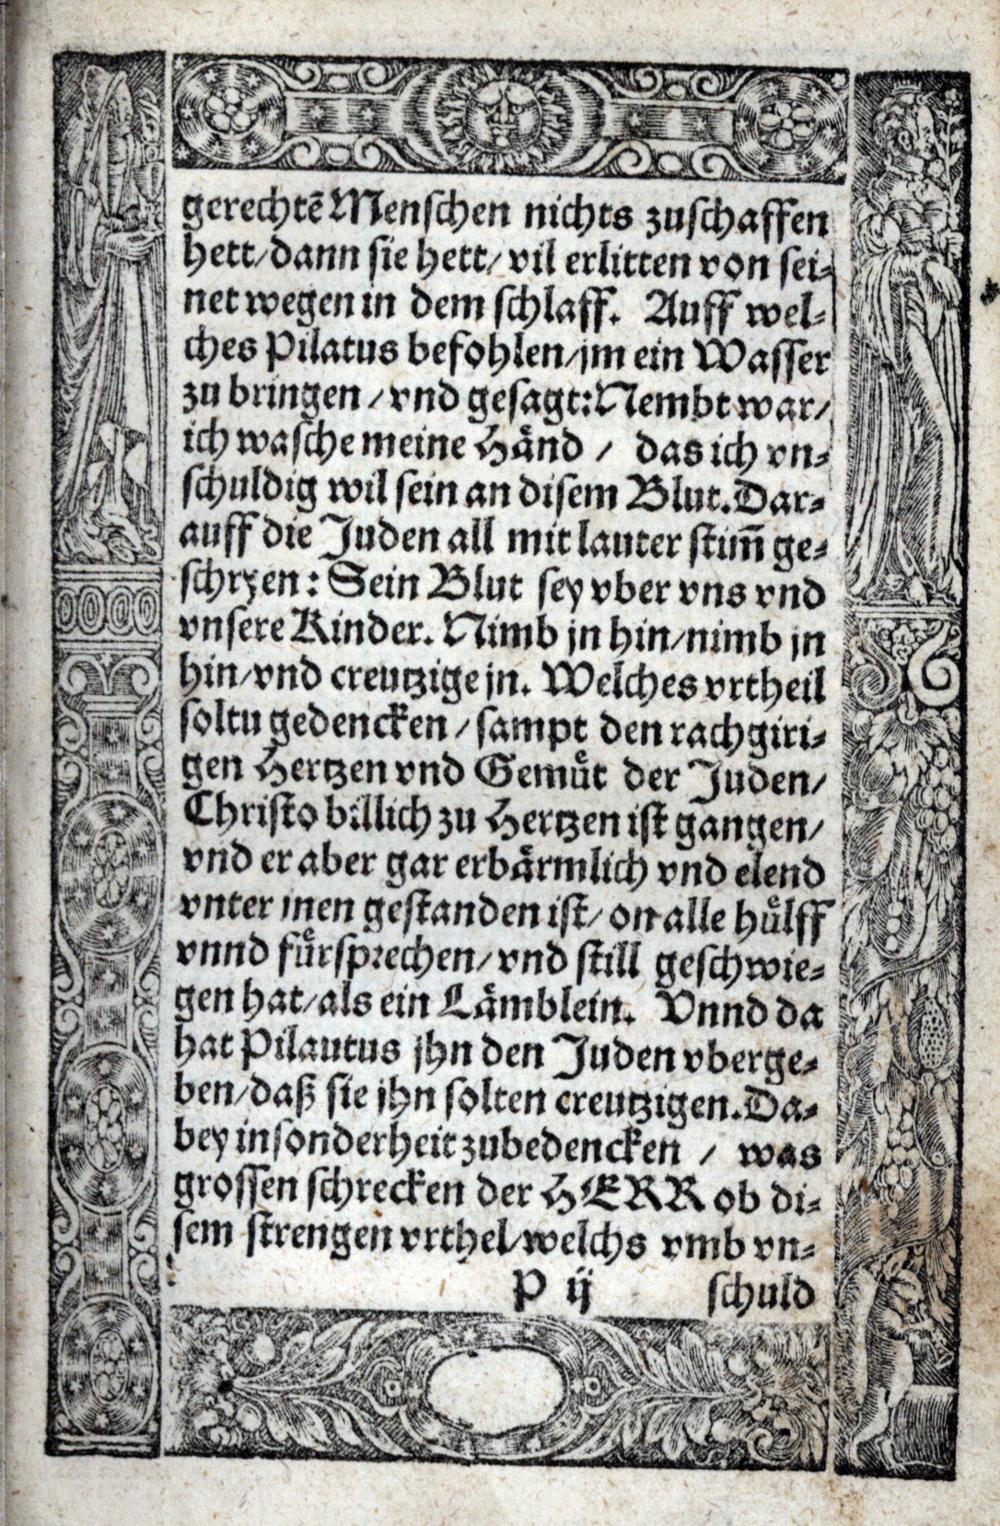 gerechtē Menschen nichts zuschaffen
hett/dann sie hett/ vil erlitten von sei⸗
net wegen in dem schlaff. Auff wel⸗
ches Pilatus befohlen/jm ein Wasser
zu bringen / vnd gesagt: Nembt war/
ich wasche meine Hånd / das ich vn⸗
schuldig wil sein an disem Blut. Dar⸗
auff die Juden all mit lauter stim̄ ge⸗
schryen: Sein Blut sey vber vns vnd
vnsere Kinder. Nimb jn hin/nimb jn
hin/vnd creutzige jn. Welches vrtheil
soltu gedencken / sampt den rachgiri⸗
gen Hertzen vnd Gemůt der Juden/
Christo billich zu Hertzen ist gangen/
vnd er aber gar erbårmlich vnd elend
vnter jnen gestanden ist/ on alle hůlff
vnnd fůrsprechen/ vnd still geschwie⸗
gen hat/als ein Låmblein. Vnnd da
hat Pilautus jhn den Juden vberge⸗
ben/daß sie jhn solten creutzigen. Da⸗
bey insonderheit zubedencken / was
grossen schrecken der HERR ob di⸗
sem strengen vrthel/welchs vmb vn⸗
P ij schuld